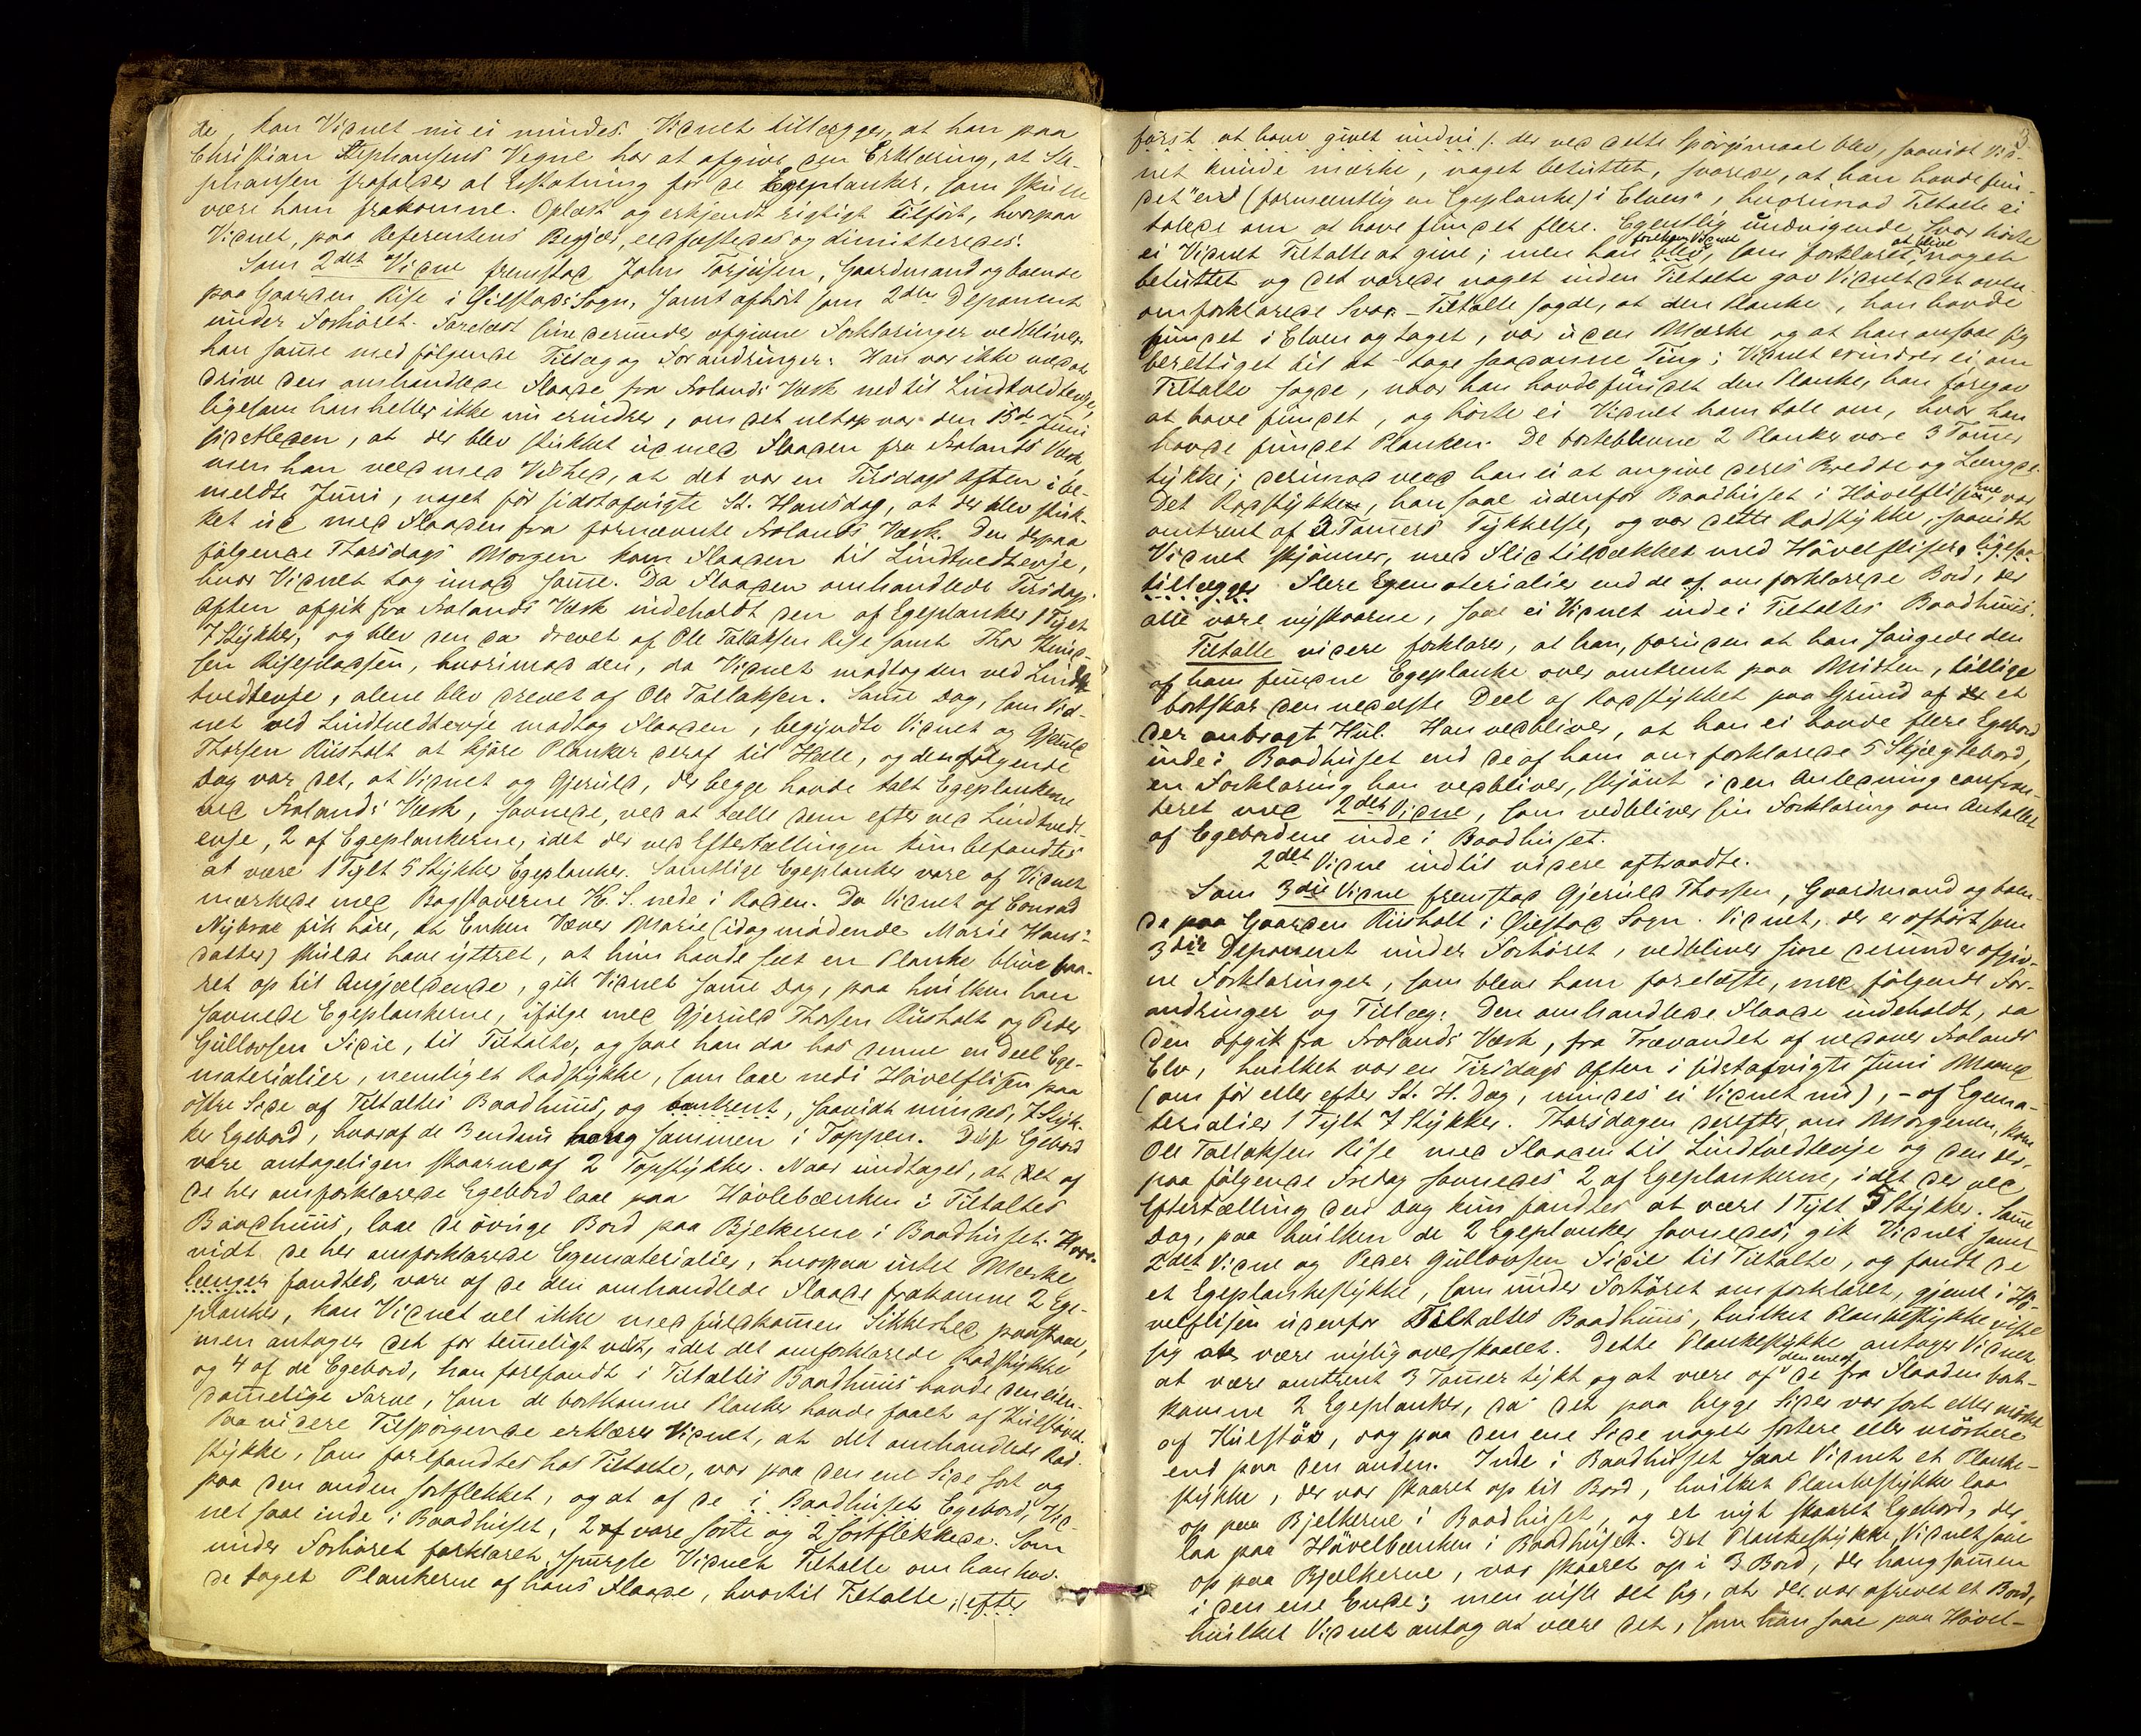 de, kan Vidnet nu ei mindes. Vidnet tillægger, at han paa
Christian Stephansens Vegne har at afgive den Erklæring, at Ste-
phansen frafalder al Erstatning for de Egeplanker, som skulle
være ham frakomne. Oplæst og erkjendt rigtigt tilført, hvorpaa
Vidnet, paa Referentens Begjær, eedfæstedes og dimitteredes.
Som 2det Vidne fremstod John Torjusen, Gaardmand og boende
paa Gaarden Rise i Øiestads Sogn, samt afhørt som 2den Deponent
under Forhøret. Forelæst sine derunder afgivne Forklaringer vedbliver
han samme med følgende Tillæg og Forandringer: Han var ikke med at
drive den omhandlede Flaade fra Frolands Værk ned til Lindtvedtevje,
ligesom han heller ikke nu erindrer, om det netop var den 15de Juni
sidstleden, at der blev stukket ud med Flaaden fra Frolands Værk,
men han veed med Vished, at det var en Tirsdags Aften i be-
meldte Juni, noget før sidstafvigte St. Hansdag, at der blev stuk-
ket ud med Flaaden fra fornævnte Frolands Værk. Den derpaa
følgende Thorsdags Morgen kom Flaaden til Lindtvedtevje,
hvor Vidnet tog imod samme. Da Flaaden omhandlede Tirsdags
Aften afgik fra Frolands Værk indeholdt den af Egeplanker 1 Tylt
7 Stykker, og blev den da drevet af Ole Tallaksen Rise samt Thor Knud-
sen Risepladsen, hvorimod den, da Vidnet modtog den ved Lindt-
tvedtevje, alene blev drevet af Ole Tallaksen. Samme Dag, som Vid-
net ved Lindtvedtevje modtog Flaaden, begyndte Vidnet og Gjeruld
Thorsen Rüsholt at kjøre Planker deraf til Hølle, og den følgende
Dag var det, at Vidnet og Gjeruld, der begge havde talt Egeplankerne
ved Frolands Værk, savnede, ved at tælle dem efter ved Lindtvedt-
evje, 2 af Egeplankerne, idet der ved Eftertællingen kun befandtes
at være 1 Tylt 5 Stykker Egeplanker. Samtlige Egeplanker vare af Vidnet
mærkede med Bogstaverne H. S. nede i Roden. Da Vidnet af Conrad
Nybroe fik høre, at Enken Væver Marie (idag mødende Marie Hans-
datter) skulde have yttret, at hun havde seet en Planke blive baa-
ret op til Angjældende, gik Vidnet samme Dag, paa hvilken han
savnede Egeplankerne, ifølge med Gjeruld Thorsen Rüsholt og Peder
Gullovsen Sidie, til Tiltalte, og saae han da hos denne en deel Ege-
materialier, nemlig et Rodstykke, som laae nedi Høvelflisen paa
østre Side af Tiltaltes Baadhuus, og omtrent, saavidt mindes, 7 Styk-
ker Egebord, hvoraf de 3 endnu hang sammen i Toppen. Disse Egebord
vare antageligen skaarne af 2 Topstykker. Naar undtages, at det af
de her omforklarede Egebord laae paa Høvlebænken i Tiltaltes
Baadhuus, laae de øvrige Bord paa Bjelkerne i Baadhuset. Hvor-
vidt de her omforklarede Egematerialier, hvorpaa intet Mærke
længer fandtes, vare af de den omhandlede Flaade frakomne 2 Ege-
planker, kan Vidnet vel ikke med fuldkommen Sikkerhed paastaae,
men antager det for temmeligt vist, idet det omforklarede Rodstykke
og 4 af de Egebord, han forefandt i Tiltaltes Baadhuus havde den eien-
dommelige Farve, som de bortkomne Planker havde faaet af Kulstøvet.
Paa videre Tilspørgende erklærer Vidnet, at det omhandlede Rod-
stykke, som forefandtes hos Tiltalte, var paa den ene Side sort og
paa den anden sortflekket, og at af de i Baadhuset Egebord, Vid-
net saae inde i Baadhuset, 2 af vare sorte og 2 sortflekkede. Som
under Forhøret forklaret, spurgte Vidnet Tiltalte om han hav-
de taget Plankerne af hans Flaade, hvortil Tiltalte, (efter
3.
først at have givet undvi /. der ved dette Spørgsmaal blev, saavidt Vid-
net kunde mærke, noget betuttet, svarede, at han havde fun-
det "en" (formentlig en Egeplanke) i Elven", hvorimod Tiltalte ei
talede om at have fundet flere. Egentlig undvigende Svar hørte
ei Vidnet Tiltalte at give; men han forekom Vidnet blev, som forklaret, at blive noget
betuttet og det varede noget inden Tiltalte gav Vidnet det oven-
omforklarede Svar – Tiltalte sagde, at den Planke, han havde
fundet i Elven og taget, var uden Mærke og at han ansaae sig
berettiget til at tage saadanne Ting; Vidnet erindrer ei om
Tiltalte sagde, naar han havde fundet den Planke, han foregav
at have fundet, og hørte ei Vidnet ham tale om, hvor han
havde fundet Planken. De borteblevne 2 Planker vare 3 Tommer
tykke; derimod veed han ei at angive deres Bredde og Længde.
Det Rodstykke, han saae udenfor Baadhuset i Høvelfliserne, var
omtrent af 3 Tommers Tykkelse, og var dette Rodstykke, saavidt
Vidnet skjønner, med Flid tildækket med Høvelfliser, ligesaa
tillægger Flere Egematerialier end de af omforklarede Bord, der
alle vare nyskaarne, saae ei Vidnet inde i Tiltaltes Baadhuus.
Tiltalte videre forklarer, at han, foruden at han saugede den
af ham fundne Egeplanke over omtrent paa Midten, tillige
bortskar den nederste Deel af Rodstykket paa Grund af et
der anbragt Hul. Han vedbliver, at han ei havde flere Egebord
inde i Baadhuset end de af ham omforklarede 5 Skjegtebord,
en Forklaring han vedbliver, skjønt i den Anledning confron-
teret med 2det Vidne, som vedbliver sin Forklaring om Antallet
af Egebordene inde i Baadhuset.
2det Vidne indtil videre aftraadte.
Som 3die Vidne fremstod Gjeruld Thorsen, Gaardmand og boen-
de paa Gaarden Rüsholt i Øiestad Sogn. Vidnet, der er afhørt som
3die Deponent under Forhøret, vedbliver sine derunder afgiv-
ne Forklaringer, som bleve ham forelæste, med følgende For-
andringer og Tillæg: Den omhandlede Flaade indeholdt, da
den afgik fra Frolands Værk, fra Trævandet af nedover Frolands
Elv, hvilket var en Tirsdags Aften i sidstafvigte Juni Maaned
(om før eller efter St. H. Dag, mindes ei Vidnet nu), – af Egema-
terialier 1 Tylt 7 Stykker. Thorsdagen derefter, om Morgenen, kom
Ole Tallaksen Rise med Flaaden til Lindtvedtevje og den der-
paa følgende Fredag savnedes 2 af Egeplankerne, idet der ved
Eftertælling den Dag kun fandtes at være 1 Tylt 5 Stykker. Samme
Dag, paa hvilken de 2 Egeplanker savnedes, gik Vidnet samt
2det Vidne og Peder Gullovsen Sidie til Tiltalte, og fandt de
et Egeplankestykke, som under Forhøret omforklaret, gjemt i Hø-
velflisen udenfor Tiltaltes Baadhuus, hvilket Plankestykke viste
sig at være nylig overskaaret. Dette Plankestykke antager Vidnet
at være omtrent 3 Tommer tykt og at være af den ene af de fra Flaaden bort-
komne 2 Egeplanker, da det paa begge Sider var sort eller mørkt
af Kulstøv, dog paa den ene Side noget sortere eller mørkere
end paa den anden. Inde i Baadhuset saae Vidnet et Planke-
stykke, der var skaaret op til Bord, hvilket Plankestykke laae
op paa Bjelkerne i Baadhuset, og et nyt skaaret Egebord, der
laa paa Høvelbænken i Baadhuset. Det Plankestykke, Vidnet saae
op paa Bjælkerne, var skaaret op i 3 Bord, der hang sammen
i den ene Ende; men viste det sig, at der var afrevet et Bord,
hvilket Vidnet antog at være det, som han saae paa Høvel-